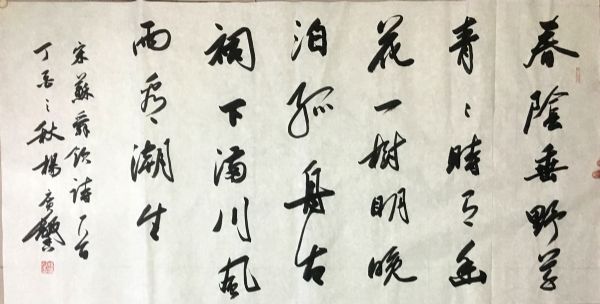 春陰垂野草
青〻時有幽
花一樹明晚
泊孤舟古
祠下滿川風
雨看潮生
宋蘇舜欽詩一首
丁酉之秋楊